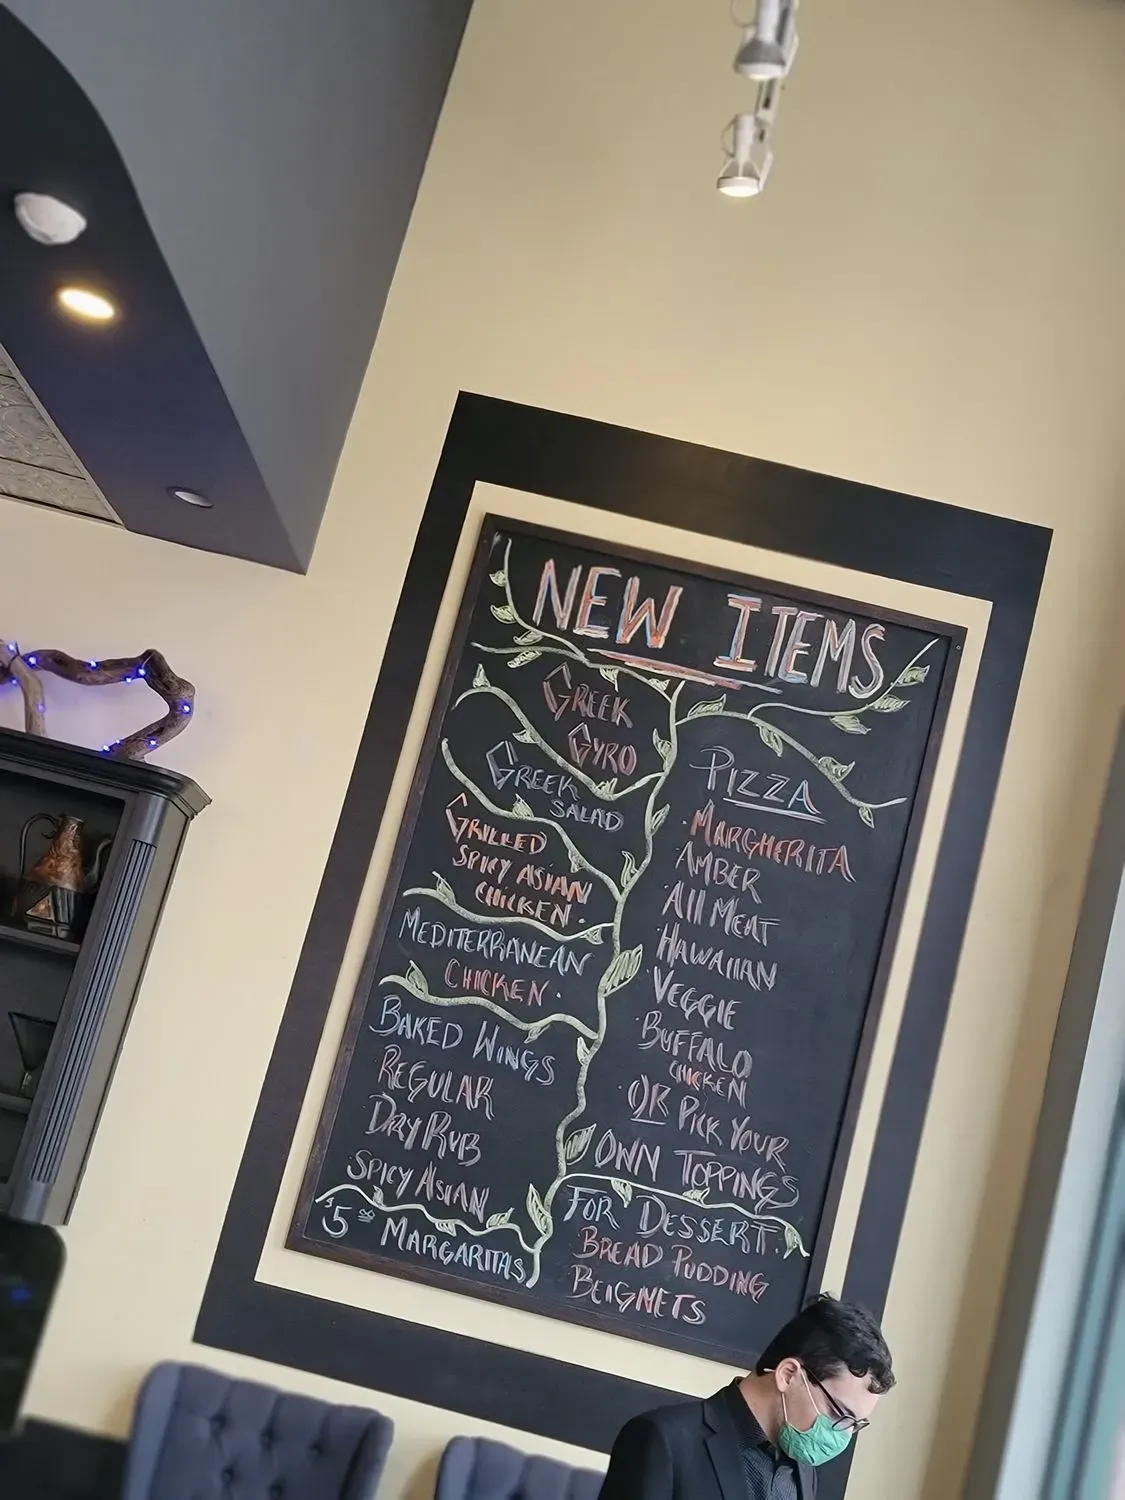 NEW ITEMS
GREEK
GYRO
GREEK
SALAD
GRILLED
SPICY ASIAN
CHICKEN.
MEDITERRANEAN
CHICKEN.
BAKED WINGS
REGULAR
DRY RUB
SPICY ASIAN
$5 00 MARGARITAS
PIZZA
MARGHERITA
AMBER
All MEAT
HAWAIIAN
VEGGIE
BUFFALO
CHICKEN
OR PICK YOUR
OWN TOPPINGS
FOR DESSERT.
BREAD PUDDING
BEIGNETS